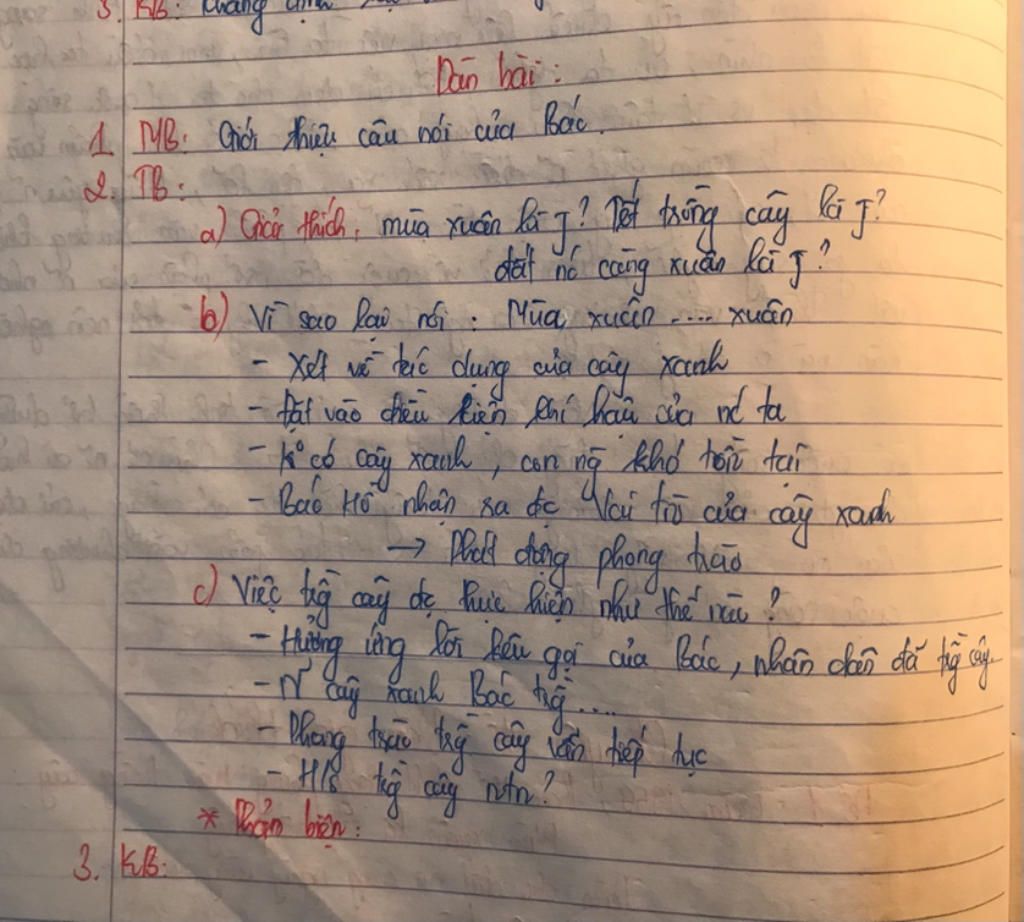 3. KB: Khẳng định
Dàn bài:
1 MB: Giới thiệu câu nói của Bác.
2. TB:
a) Giải thích: mùa xuân là j? Tết trồng cây là j?
đất nc càng xuân là j?
b) Vì sao lại nói: Mùa xuân .... xuân
- Xét về tác dụng của cây xanh
- Đặt vào điều kiện khí hậu của nc ta
- K° có cây xanh, con ng̃ khó tồn tại
- Bác Hồ nhận ra đc vai trò của cây xanh
→ Phát động phong trào
c) Việc tg̃ cây đc thực hiện như thế nào?
- Hưởng ứng lời kêu gọi của Bác, nhân dân đã tg̃ cây.
- N~ cây xanh Bác tg̃ ....
- Phong trào tg̃ cây vẫn tiếp tục
- H/s tg̃ cây ntn?
* Phản biện:
3. KB: